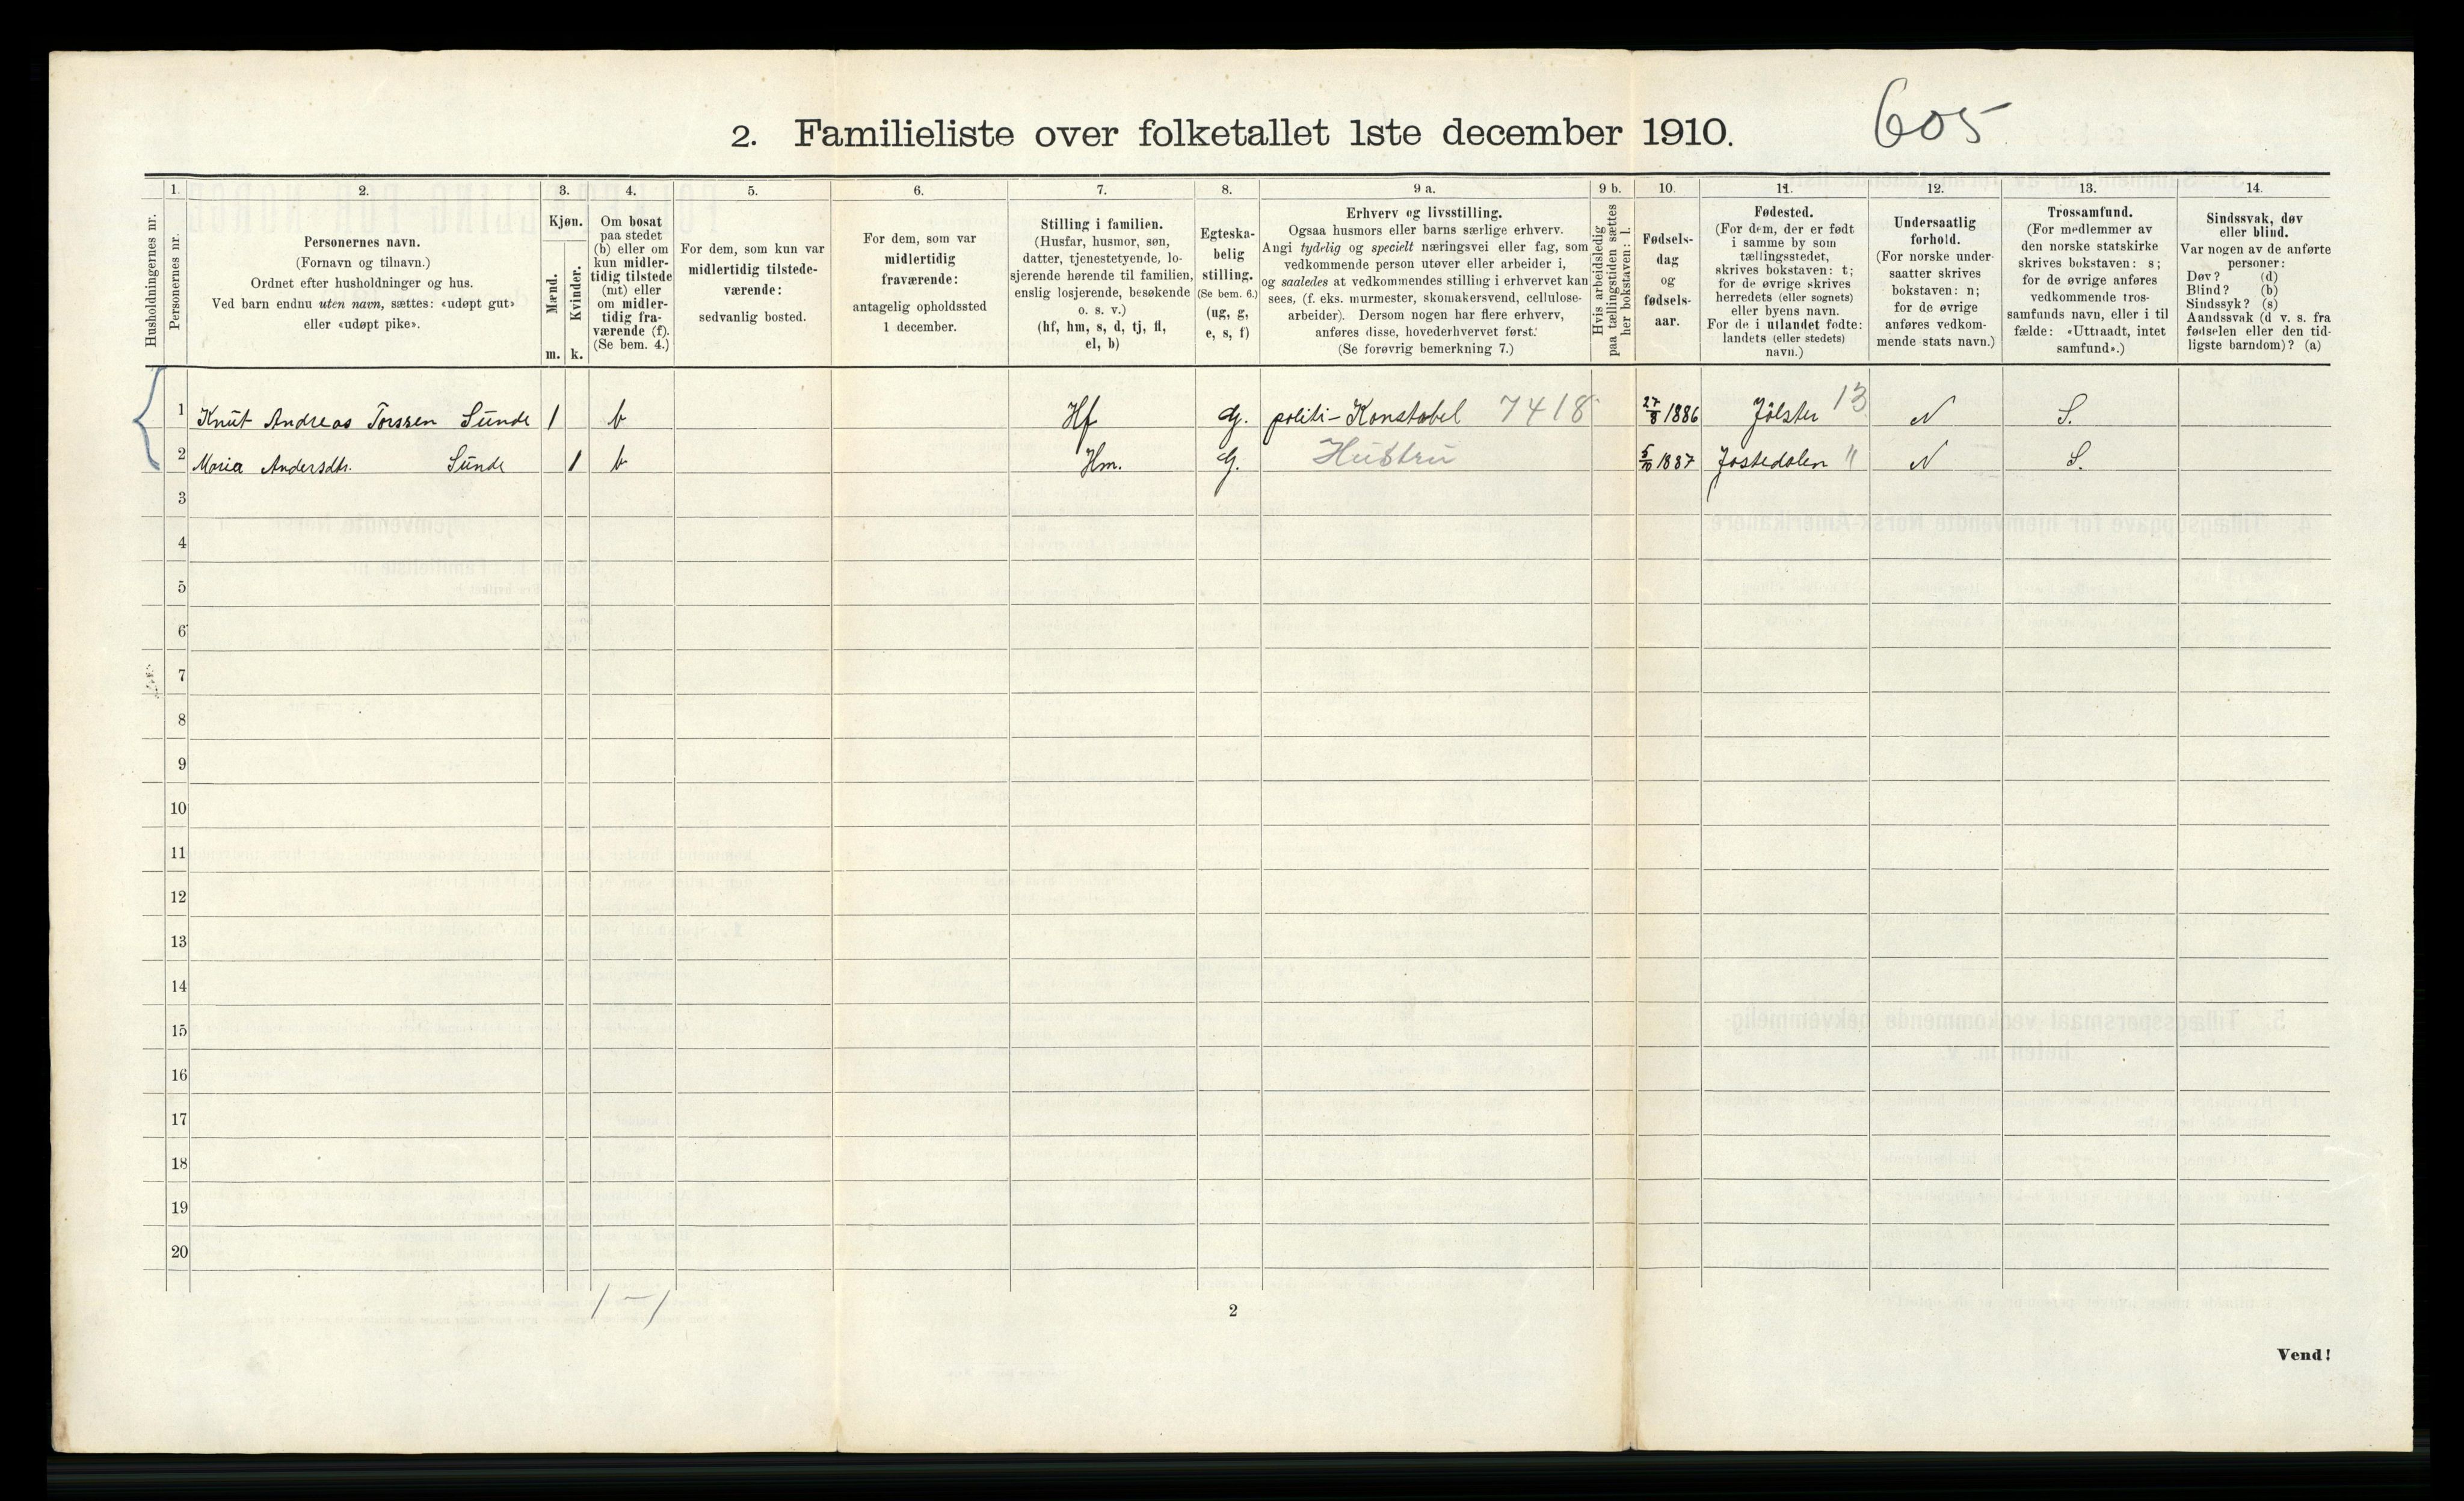 605
2. Familieliste over folketallet 1ste december 1910.
1. 2. 3. 4. 5. 6. 7. 8. 9 a. 9 b. 10. 11. 12. 13. 14.
Husholdningernes nr.
Personernes nr.
Personernes navn.
(Fornavn og tilnavn.)
Ordnet efter husholdninger og hus.
Ved barn endnu uten navn, sættes: «udøpt gut»
eller «udøpt pike».
Kjøn.
Mænd.
Kvinder.
m. k.
Om bosat
paa stedet
(b) eller om
kun midler-
tidig tilstede
(mt) eller
om midler-
tidig fra-
værende (f).
(Se bem. 4.)
For dem, som kun var
midlertidig tilstede-
værende:
sedvanlig bosted.
For dem, som var
midlertidig
fraværende:
antagelig opholdssted
1 december.
Stilling i familien.
(Husfar, husmor, søn,
datter, tjenestetyende, lo-
sjerende hørende til familien,
enslig losjerende, besøkende
o. s. v.)
(hf, hm, s, d, tj, fl,
el, b)
Egteska-
belig
stilling.
(Se bem. 6.)
(ug, g,
e, s, f)
Erhverv og livsstilling.
Ogsaa husmors eller barns særlige erhverv.
Angi tydelig og specielt næringsvei eller fag, som
vedkommende person utøver eller arbeider i,
og saaledes at vedkommendes stilling i erhvervet kan
sees, (f. eks. murmester, skomakersvend, cellulose-
arbeider). Dersom nogen har flere erhverv,
anføres disse, hovederhvervet først.
(Se forøvrig bemerkning 7.)
Hvis arbeidsledig
paa tællingstiden sættes
her bokstaven: l.
Fødsels-
dag
og
fødsels-
aar.
Fødested.
(For dem, der er født
i samme by som
tællingsstedet,
skrives bokstaven: t;
for de øvrige skrives
herredets (eller sognets)
eller byens navn.
For de i utlandet fødte:
landets (eller stedets)
navn.)
Undersaatlig
forhold.
(For norske under-
saatter skrives
bokstaven: n;
for de øvrige
anføres vedkom-
mende stats navn.)
Trossamfund.
(For medlemmer av
den norske statskirke
skrives bokstaven: s;
for de øvrige anføres
vedkommende tros-
samfunds navn, eller i til-
fælde: «Uttraadt, intet
samfund».)
Sindssvak, døv
eller blind.
Var nogen av de anførte
personer:
Døv? (d)
Blind? (b)
Sindssyk? (s)
Aandssvak (d v. s. fra
fødselen eller den tid-
ligste barndom)? (a)
1 Knut Andreas Torssen Sunde 1 b Hf g. politi-Konstabel 7418 27/8 1886 Jølster 13 N S.
2 Maria Andersdtr. Sunde 1 b Hm. g. Hustru 5/10 1887 Jostedalen " N S.
3
4
5
6
7
8
9
10
11
12
13
14
15
16
17
18
19
20
1-1
2
Vend!